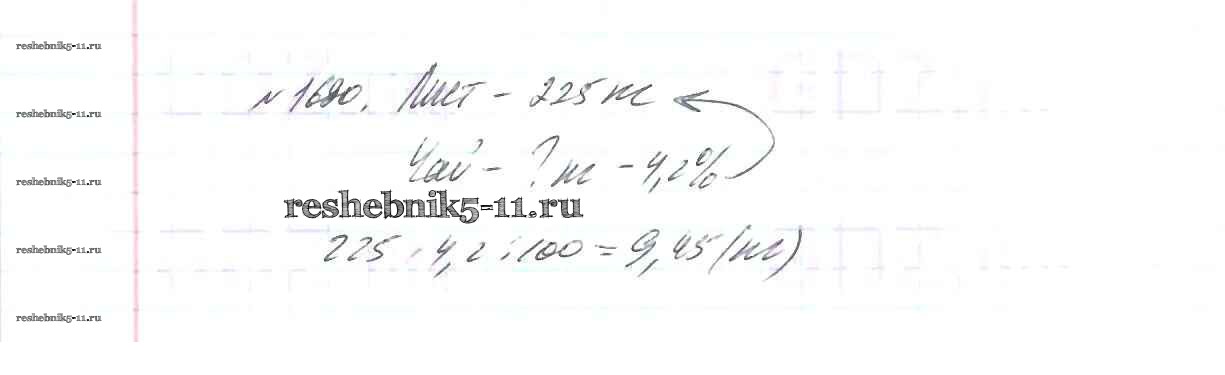 reshebnik5-11.ru
№1690. Лист - 225 кг
reshebnik5-11.ru
Чай - ? кг - 4,2%
reshebnik5-11.ru
reshebnik5-11.ru
225 · 4,2 : 100 = 9,45 (кг)
reshebnik5-11.ru
reshebnik5-11.ru